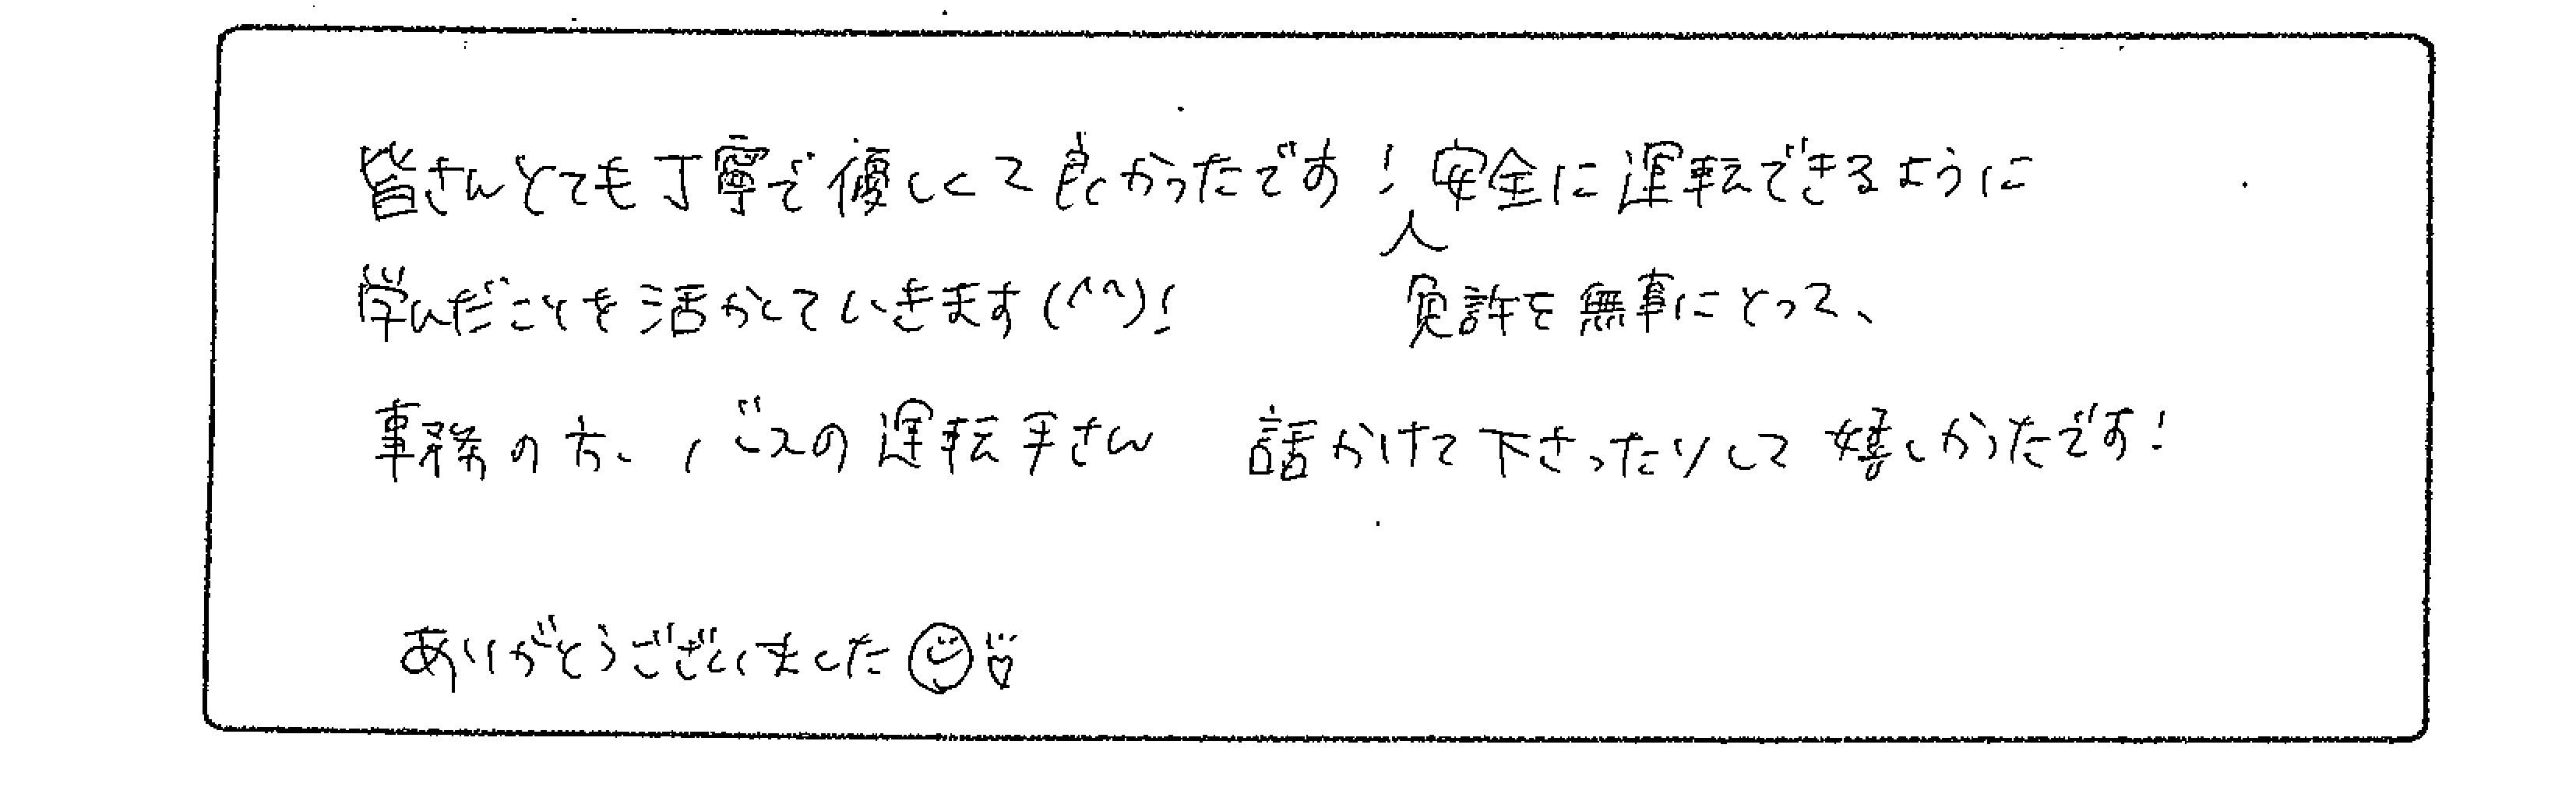 皆さんとても丁寧で優しくて良かったです！安全に運転できるように
学んだことを活かしていきます(^^)！
免許を無事にとって、
事務の方、バスの運転手さん 話かけて下さったりして嬉しかったです！
ありがとうございました